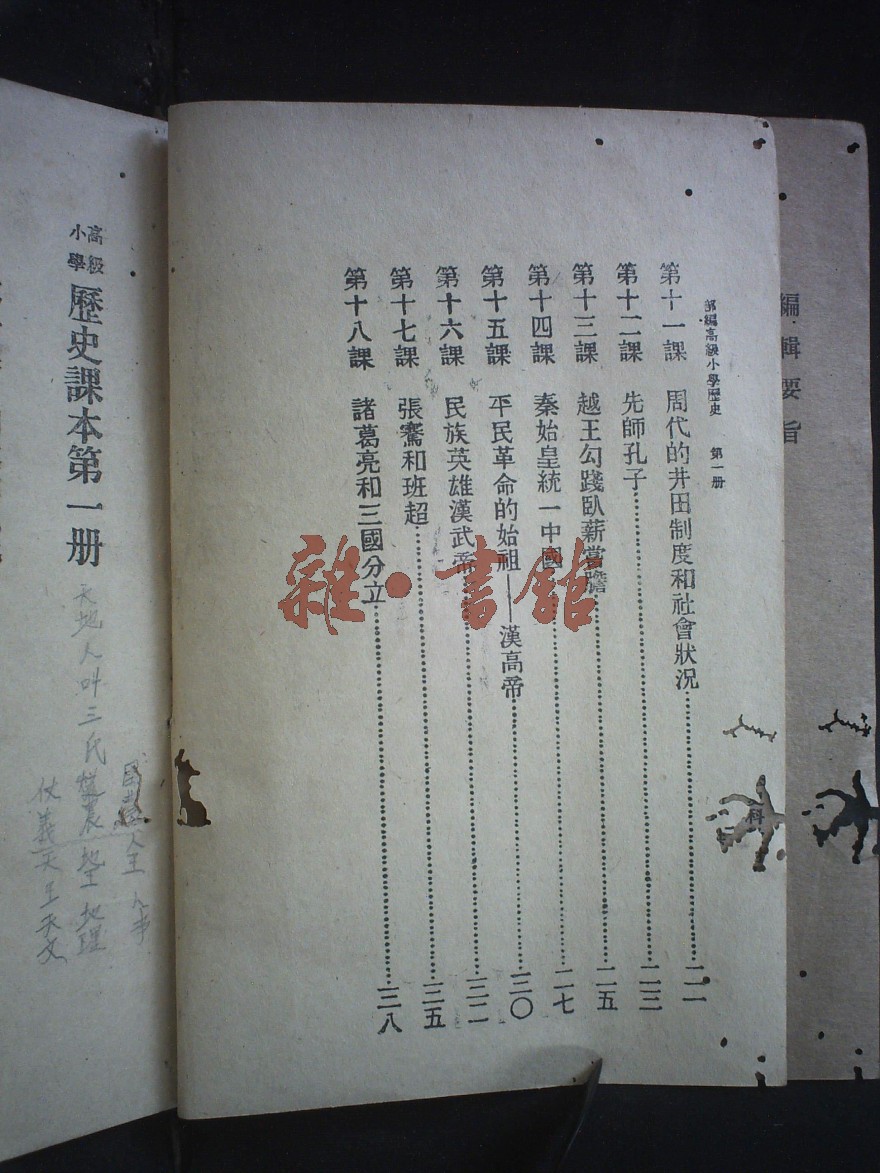 編輯要旨
科
部編高級小學歷史　第一册
第十一課　周代的井田制度和社會狀況……二一
第十二課　先師孔子……二三
第十三課　越王勾踐臥薪嘗膽……二五
第十四課　秦始皇統一中國……二七
第十五課　平民革命的始祖——漢高帝……三〇
第十六課　民族英雄漢武帝……三二
第十七課　張騫和班超……三五
第十八課　諸葛亮和三國分立……三八
雜·書館
高級小學　歷史課本第一册
天地人叫三氏
人王
地王 地理
仗義天王天文